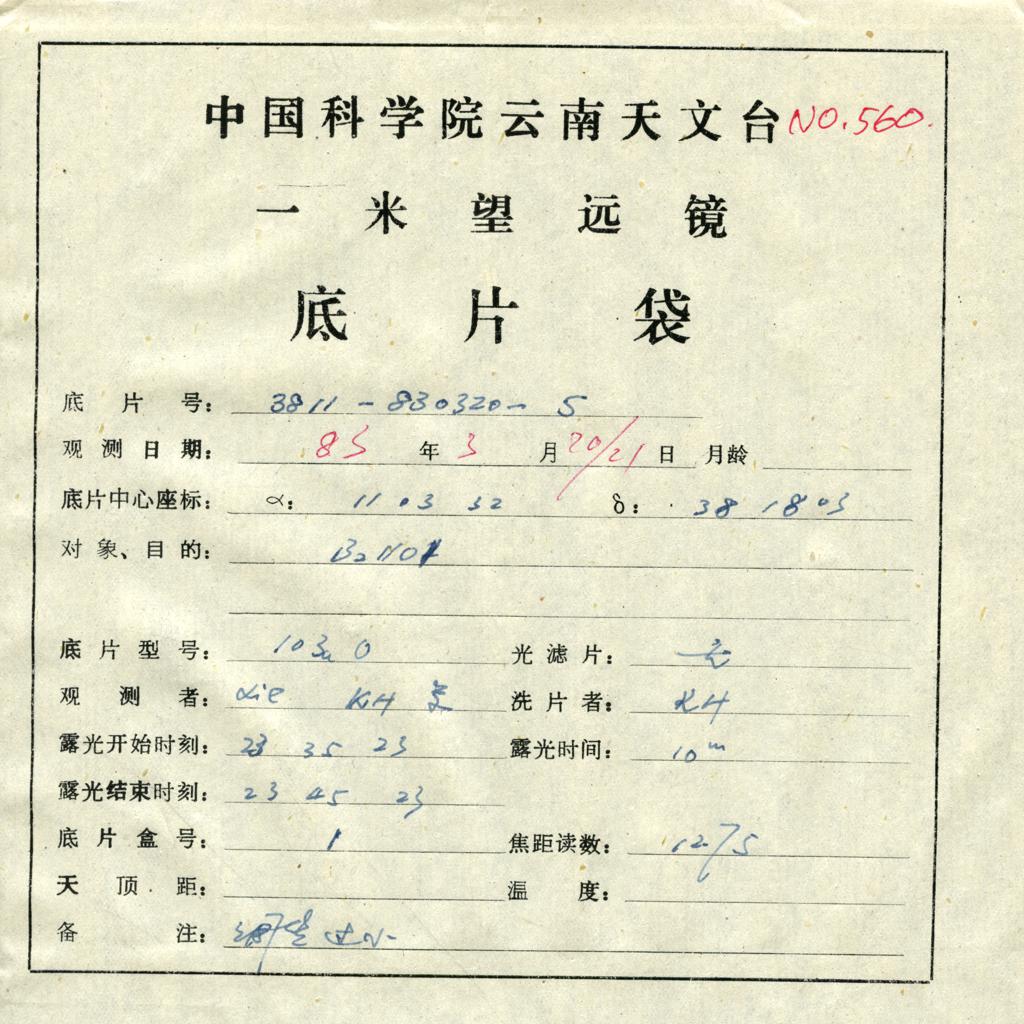 中国科学院云南天文台 NO.560.
一米望远镜
底片袋
底片号： 3811-830320-5
观测日期： 83 年 3 月 20/21 日 月龄
底片中心座标： α： 11 03 32 δ： 38 18 03
对象、目的： B2 1101
底片型号： 103a O 光滤片： 无
观测者： Lie KH 洗片者： KH
露光开始时刻： 23 35 23 露光时间： 10m
露光结束时刻： 23 45 23
底片盒号： 1 焦距读数： 1275
天顶距： 温度：
备注： 过小